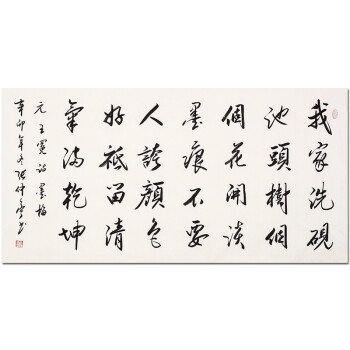 我家洗硯
池頭樹個
個花開淡
墨痕不要
人誇顏色
好祗留清
氣滿乾坤
元王冕詩墨梅
辛卯年冬張仲亭書